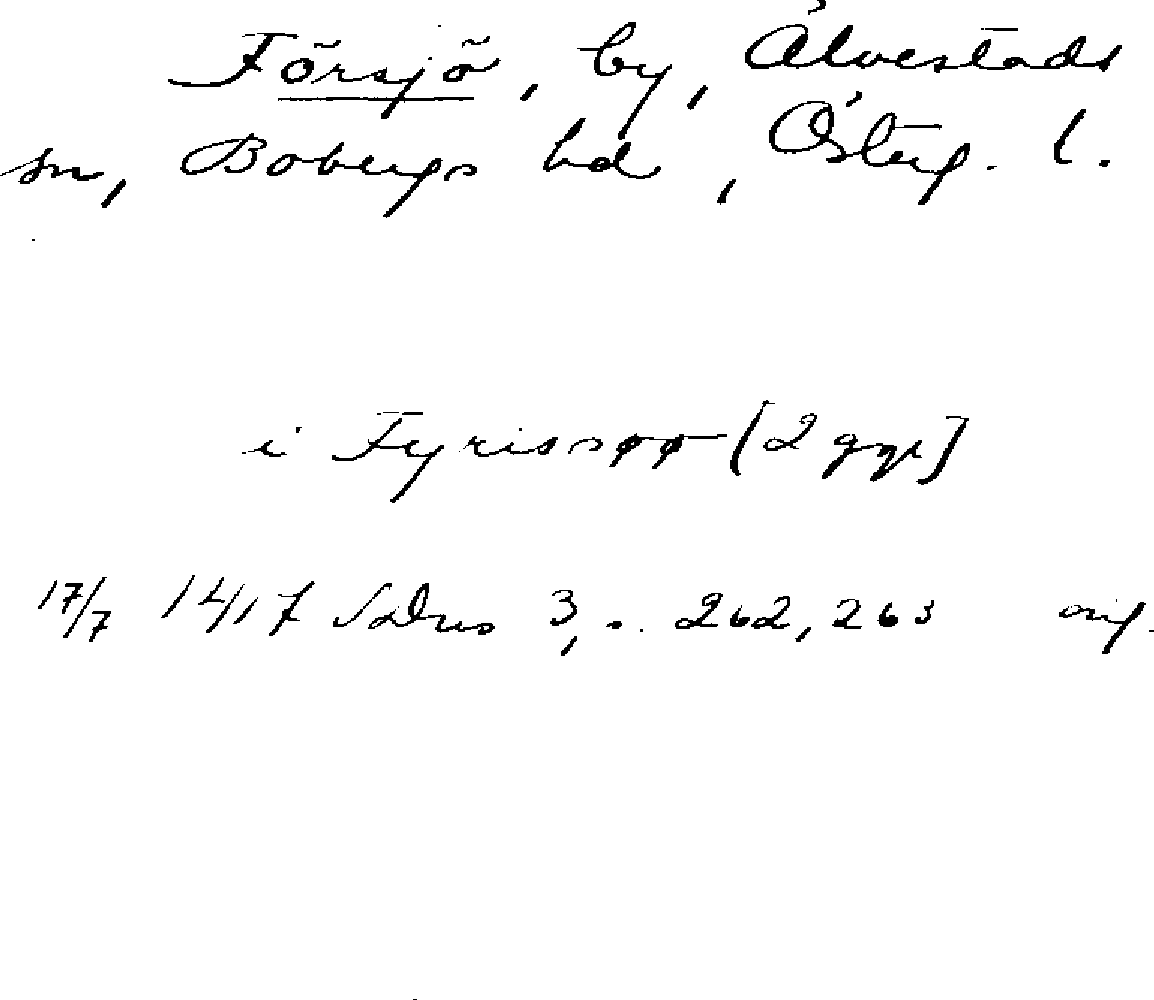 Försjö, by, Älvestads
sn, Bobergs hd, Österg. l.
i Fyrissøø (2 ggr)
17/7 1417 SDns 3, s. 262, 263 orig.